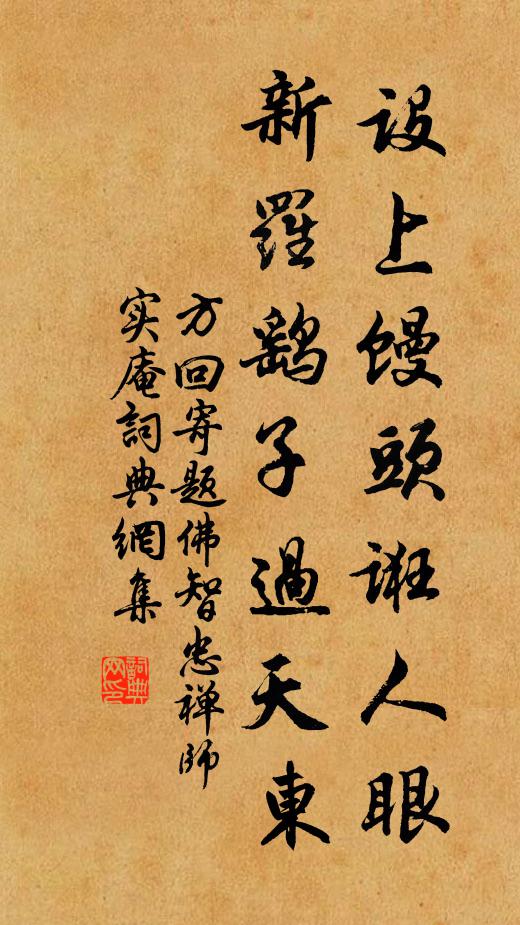 設上饅頭誑人眼
新羅鷂子過天東
方回寄題佛智忠禅師
实庵詞典網集
詞典
网印